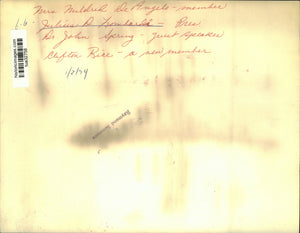 Mrs Mildred De Angelo - member
L.6 - Julius D. Lombardi - Pres
Dr John Spring - guest speaker
Clifton Rice - a new member
1/2/74